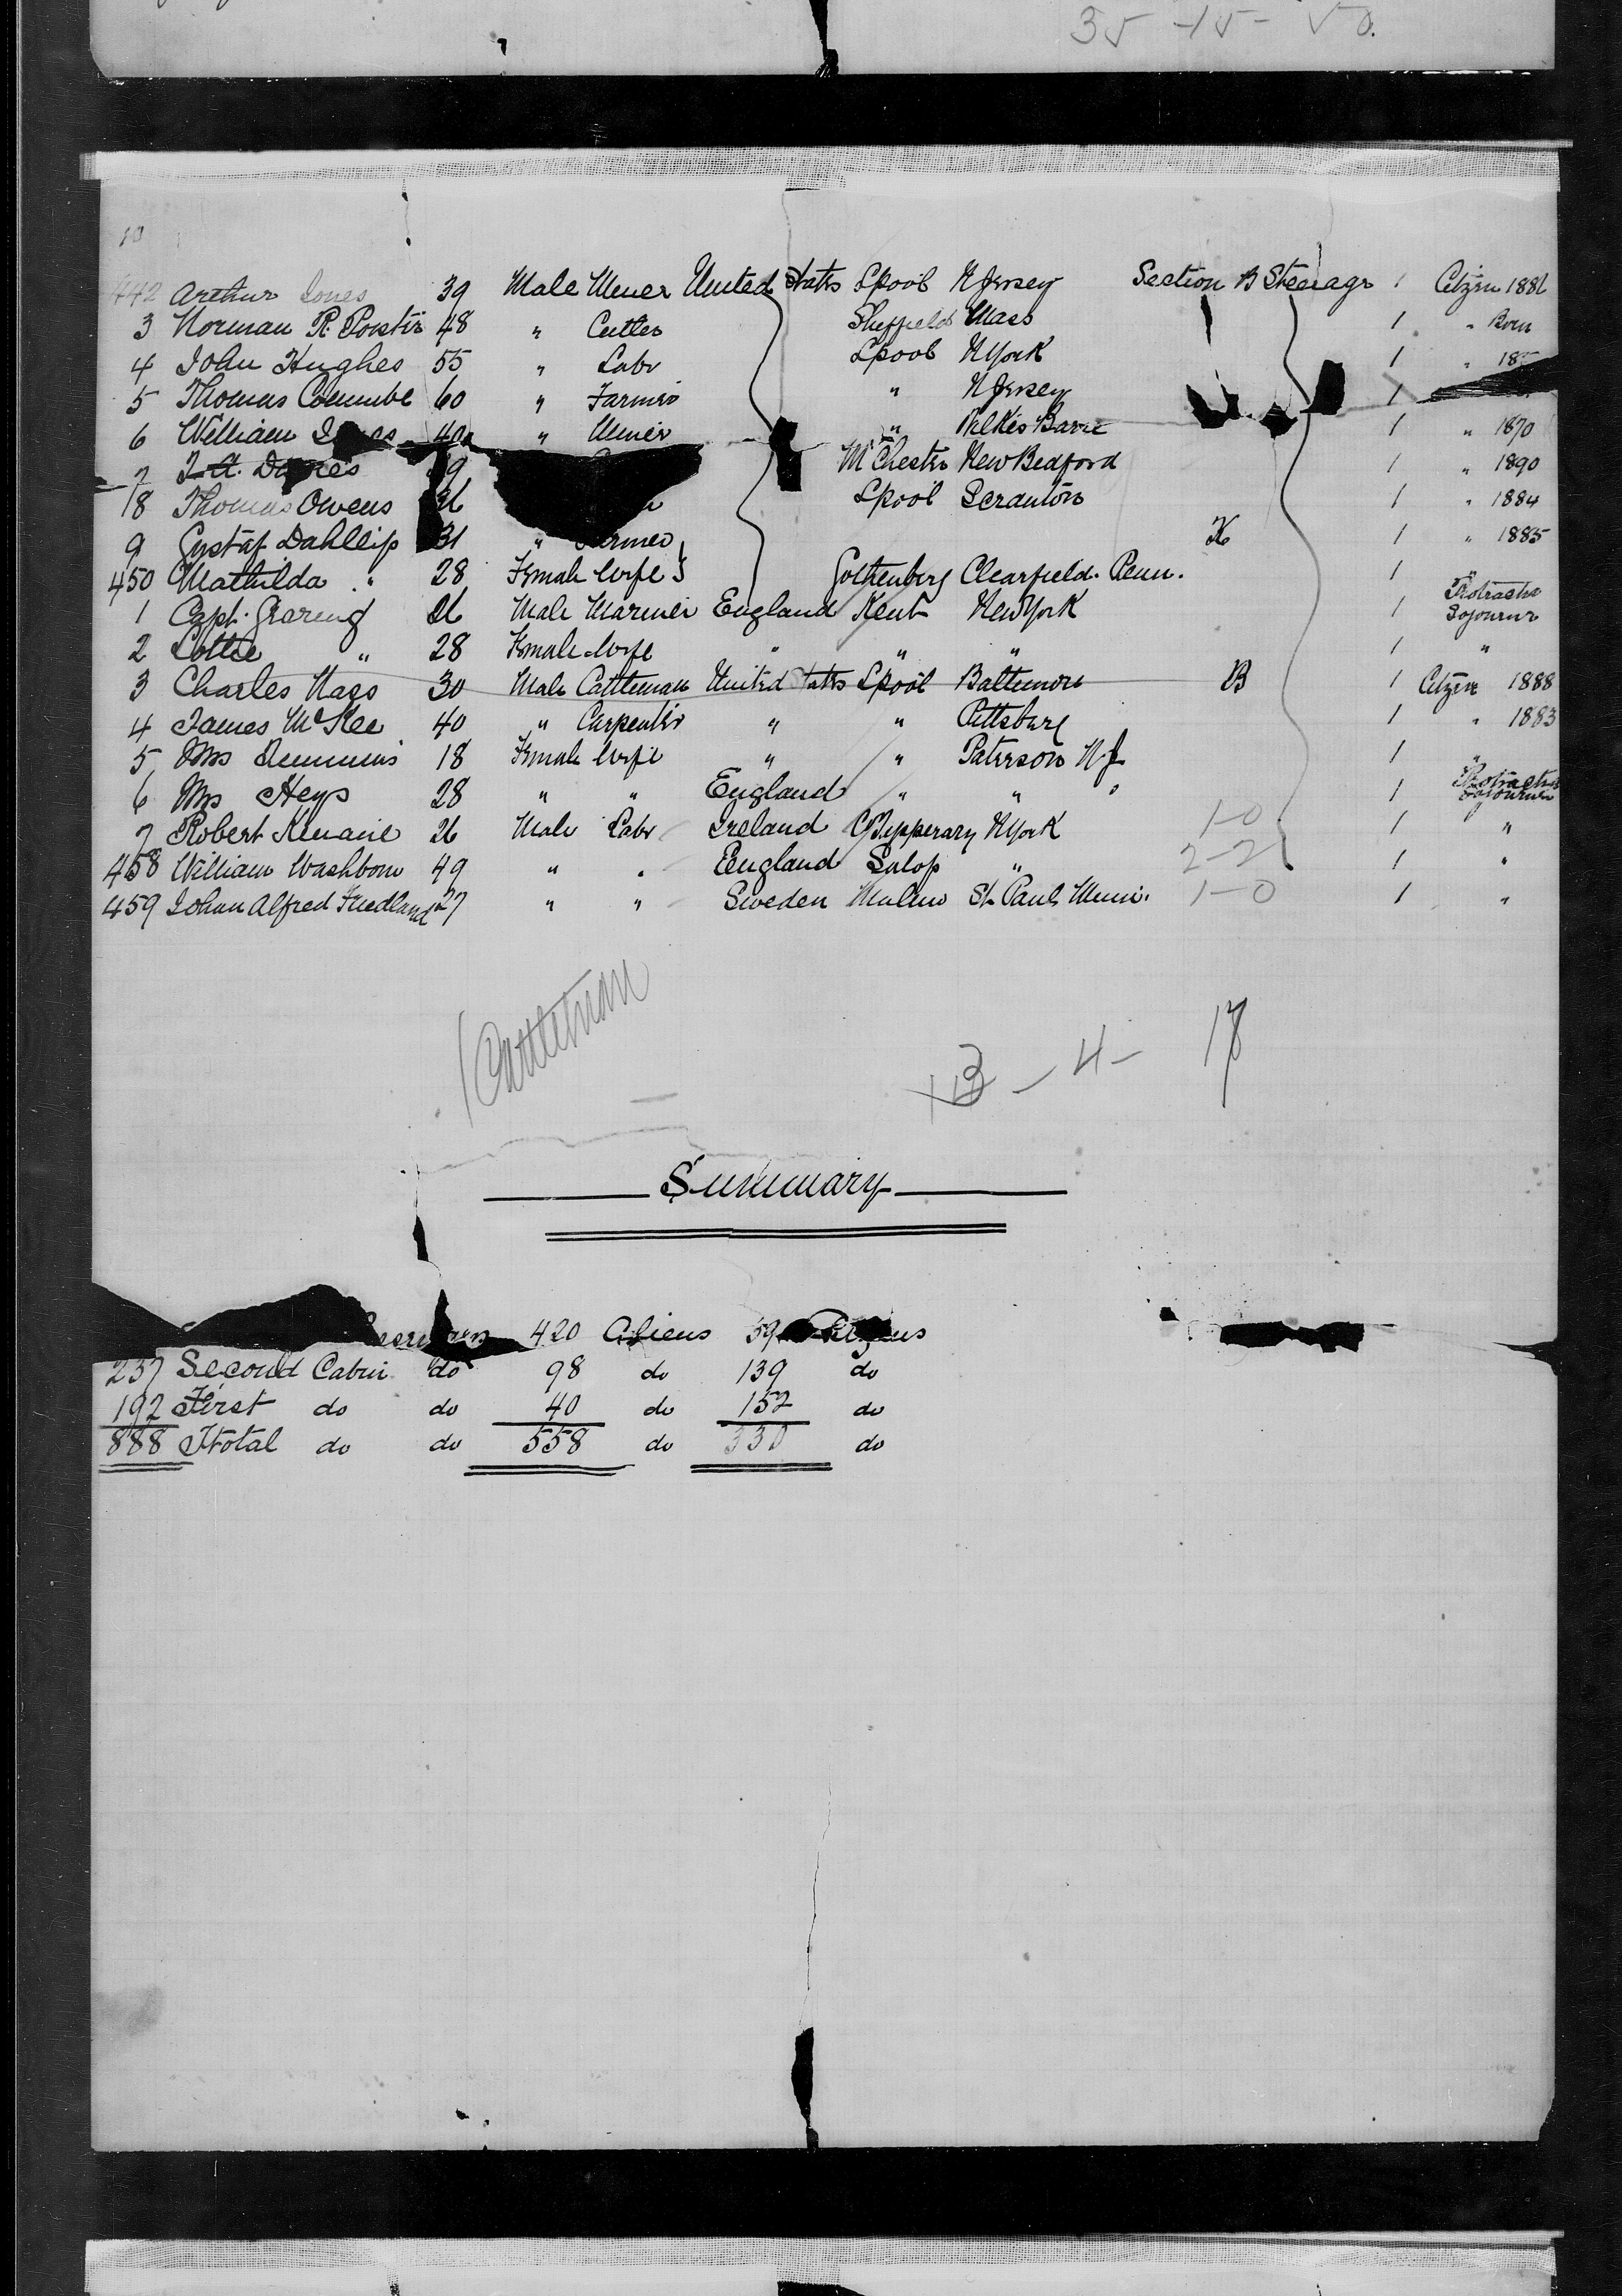 35 - 15 - 50.
10
442 Arthur Jones 39 Male Miner United States Lpool N Jersey Section B Steerage 1 Citzen 1881
3 Norman R. 48 " Cutler Sheffield Mass 1 " Born
4 John Hughes 55 " Labr Lpool N York 1 "
5 Thomas 60 " Farmer " N Jersey 1
6 William 40 " Miner " Wilkes Barre 1 " 1870
7 M Chester New Bedford 1 " 1890
8 Thomas Owens Lpool Scranton 1 " 1884
9 Gustaf 31 " Farmer K 1 " 1885
450 Mathilda " 28 Female Wife Gothenberg Clearfield. Penn. 1 "
1 Capt. Male Mariner England Kent New York 1 Protracted Sojourner
2 Lottie " 28 Female Wife " " " 1 "
3 Charles 30 Male Cattleman United States Lpool Baltimore B 1 Citzen 1888
4 James McKee 40 " Carpenter " " Pittsburg 1 " 1883
5 Mrs 18 Female Wife " " Paterson N.J 1 "
6 Mrs Heys 28 " " England " " " 1 Protracted Sojourner
7 Robert 26 Male Labr Ireland Tipperary N York 1-0 1 "
458 William Washborn 49 " " England Salop " 2-2 1 "
459 Johan Alfred Friedland 27 " " Sweden Malmo St. Paul Minn. 1-0 1 "
1 Cattleman
13 - 4 - 17
Summary
420 Aliens 39
237 Second Cabin do 98 do 139 do
192 First do do 40 do 152 do
888 Total do do 558 do 330 do